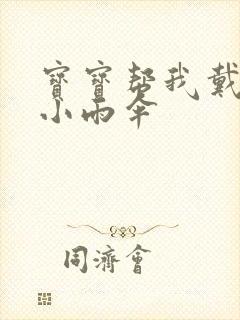 寶寶幫我戴
小雨伞
同濟會